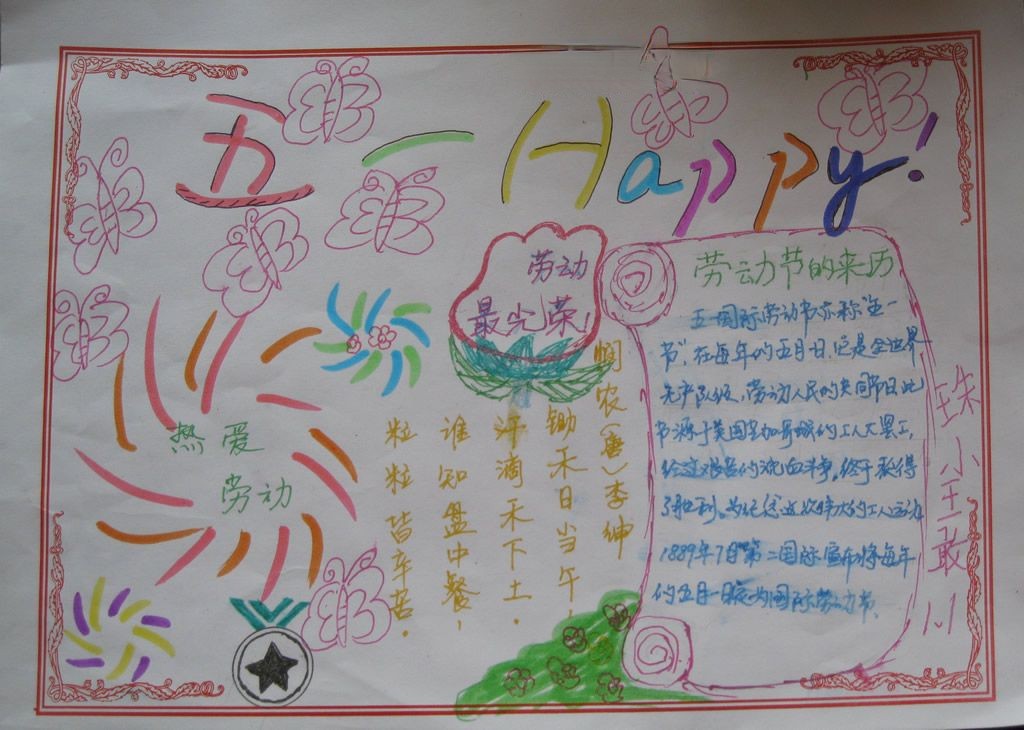 五一 Happy!
劳动
最光荣!
劳动节的来历
五一国际劳动节亦称“五一
节”,在每年的五月一日,它是全世界
无产阶级、劳动人民的共同节日,此
节源于美国芝加哥城的工人大罢工,
经过艰苦的流血斗争,终于获得
了胜利。为纪念这次伟大的工人运动
1889年7月第二国际宣布将每年
的五月一日定为国际劳动节。
悯农(唐)李绅
锄禾日当午,
汗滴禾下土。
谁知盘中餐,
粒粒皆辛苦。
热爱
劳动
珠小 王敢 1.1